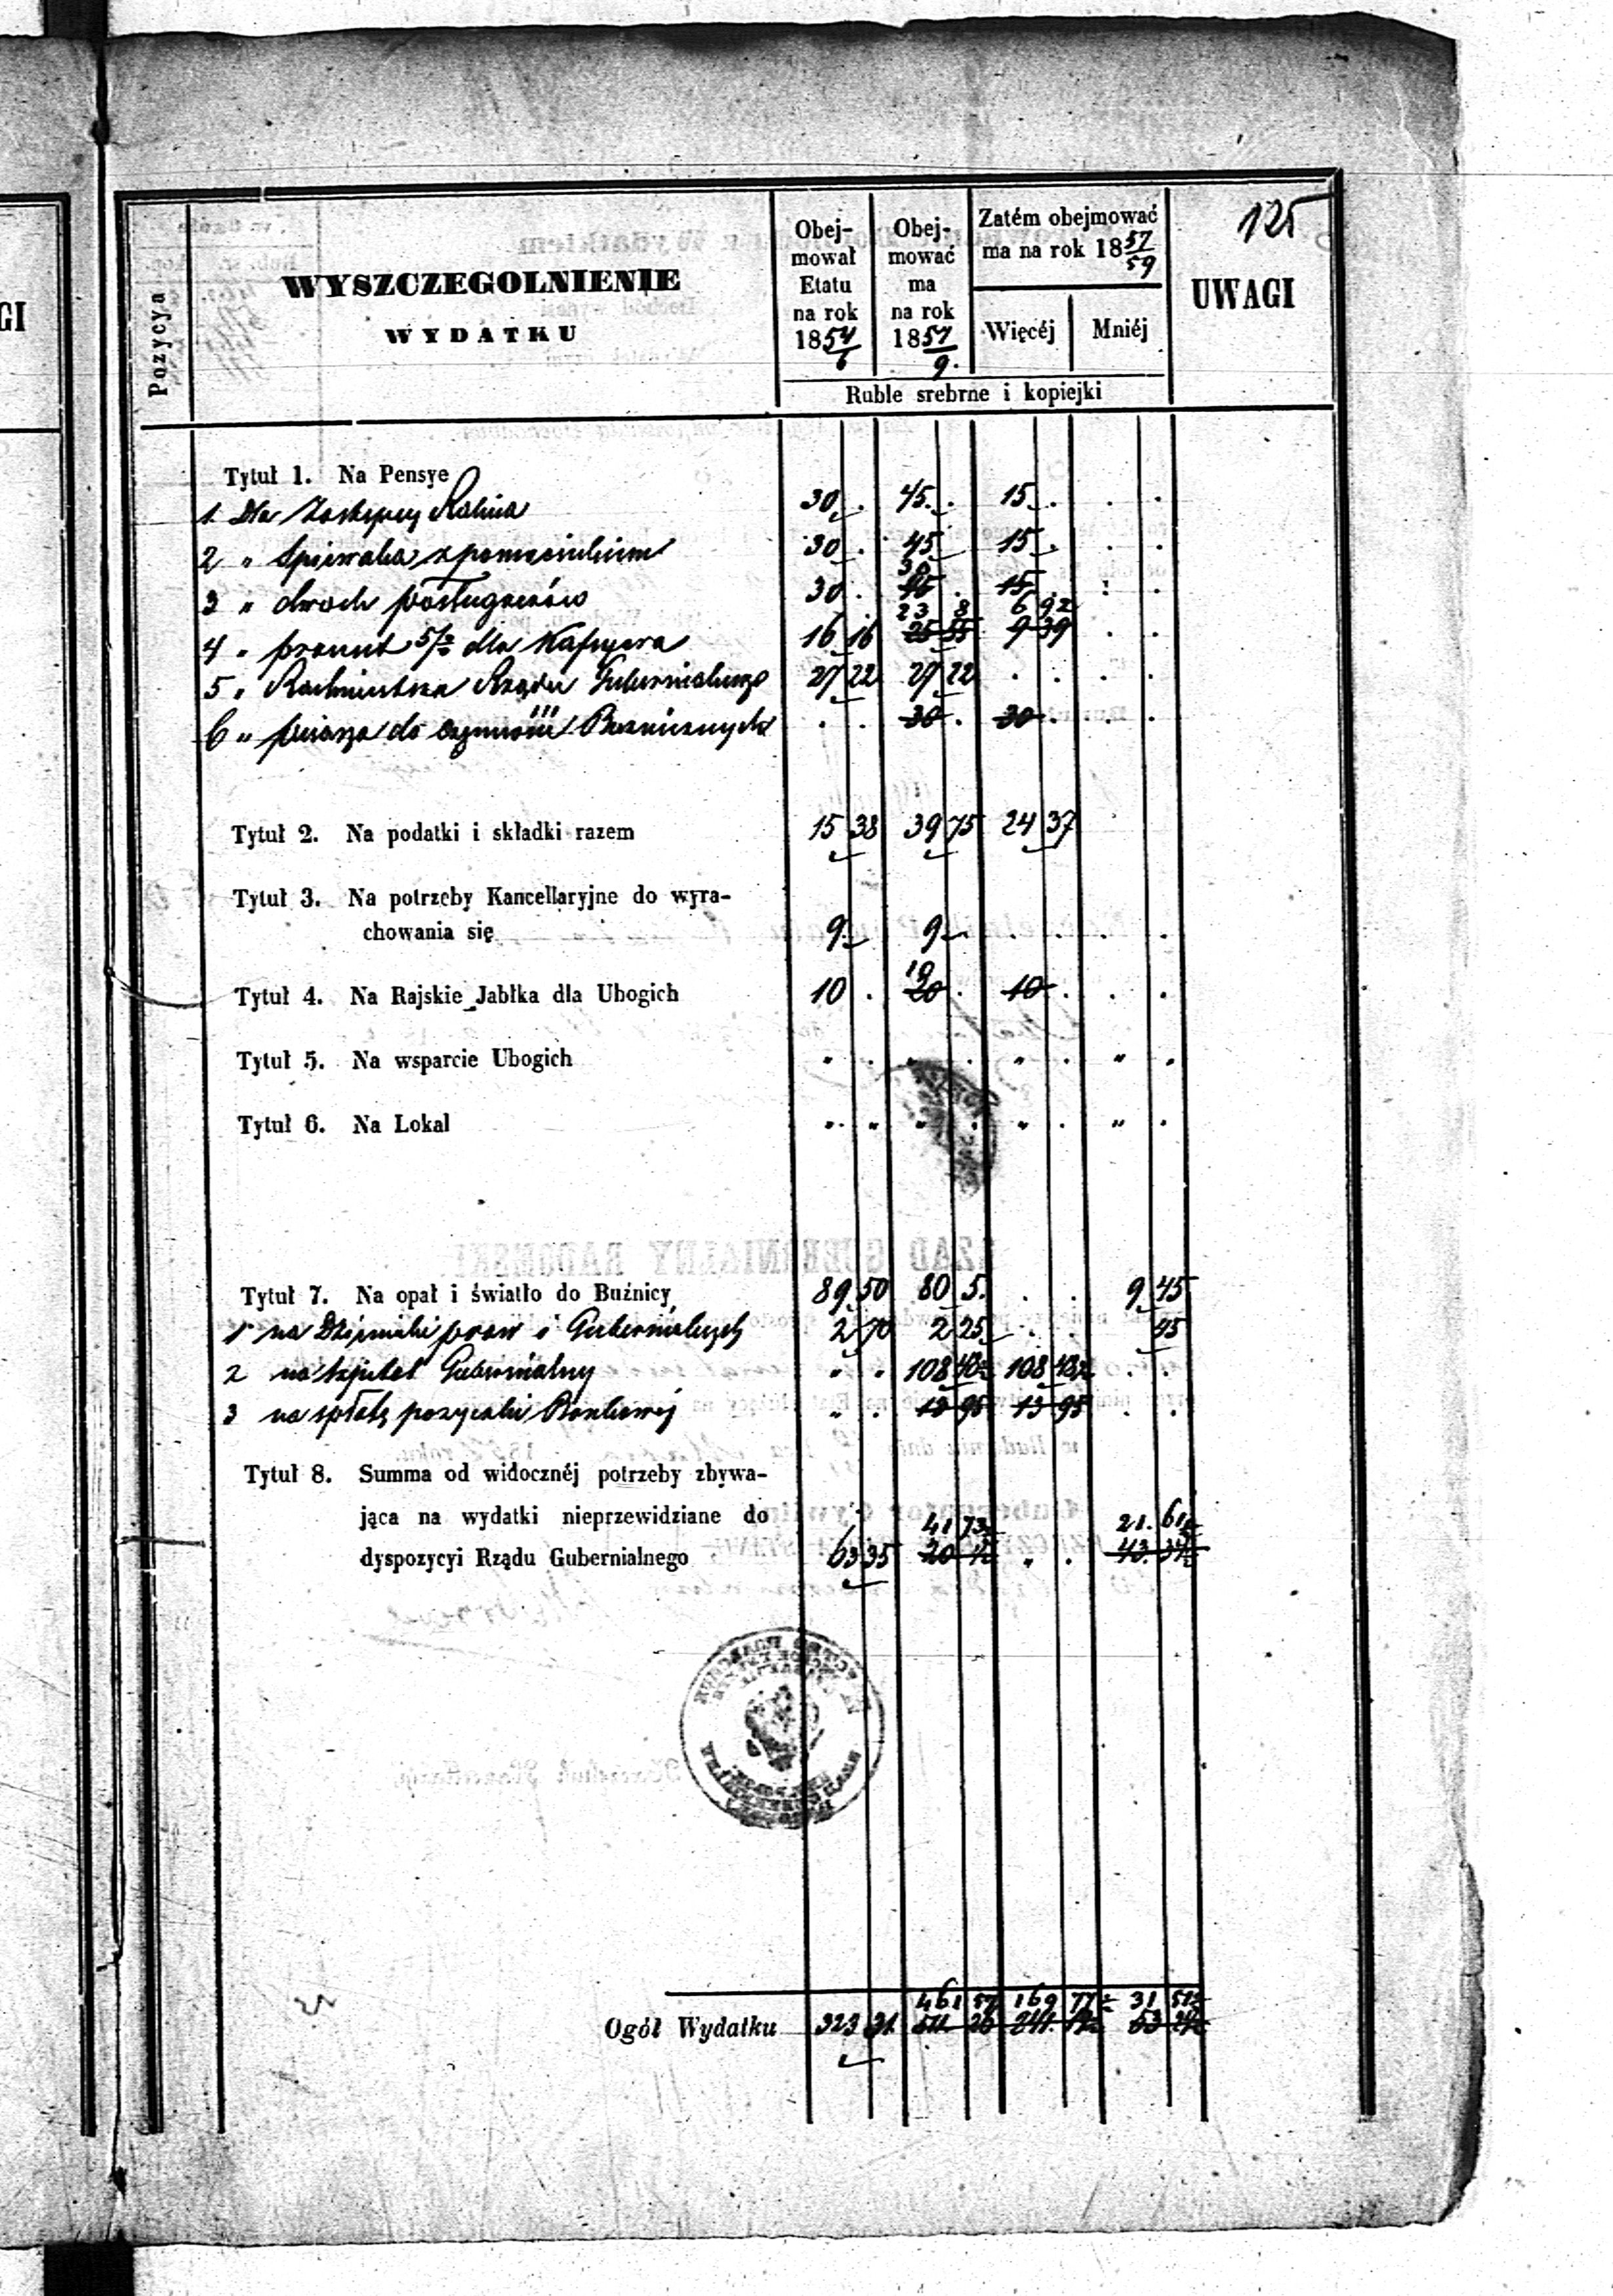 125
Pozycya
WYSZCZEGOLNIENIE
WYDATKU
Obej-
mował
Etatu
na rok
1854/6
Obej-
mować
ma
na rok
1857/9.
Zatém obejmować
ma na rok 1857/59
Więcéj Mniéj
UWAGI
GI
Ruble srebrne i kopiejki
Tytuł 1. Na Pensye
1 Dla Zastępcy Rabina 30 . 45 . 15 . . .
2 " Spiewaka z pomocnikiem 30 . 45 15 . . .
30
3 " dwoch posługaczów 30 . 45 . 15 . . .
23 8 6 92
4 " procent 5/% dla Kassyera 16 16 25 55 9 39 . .
5 " Rachmistrza Rządu Gubernialnego 27 22 27 22 . . . .
6 " pisarza do czynności Bóżnicznych . . 30 . 30 . . .
Tytuł 2. Na podatki i składki razem 15 38 39 75 24 37
Tytuł 3. Na potrzeby Kancellaryjne do wyra-
chowania się 9 9 . . . .
10
Tytuł 4. Na Rajskie Jabłka dla Ubogich 10 . 20 . 10 . . .
Tytuł 5. Na wsparcie Ubogich
Tytuł 6. Na Lokal
Tytuł 7. Na opał i światło do Buźnicy 89 50 80 5. . . 9 45
1 na Dzienniki praw i Gubernialnych 2 70 2 25 . . 45
2 na Szpital Gubernialny " . 108 48½ 108 48½ . .
3 na spłatę pożyczki Bankowej " . 13 95 13 95 . .
Tytuł 8. Summa od widocznéj potrzeby zbywa-
jąca na wydatki nieprzewidziane do 41 73½ 21. 61½
dyspozycyi Rządu Gubernialnego 63 35 20 " . 43. 34½
461 57 169 77½ 31 51½
Ogół Wydatku 323 31. 511 26 241 53 24½